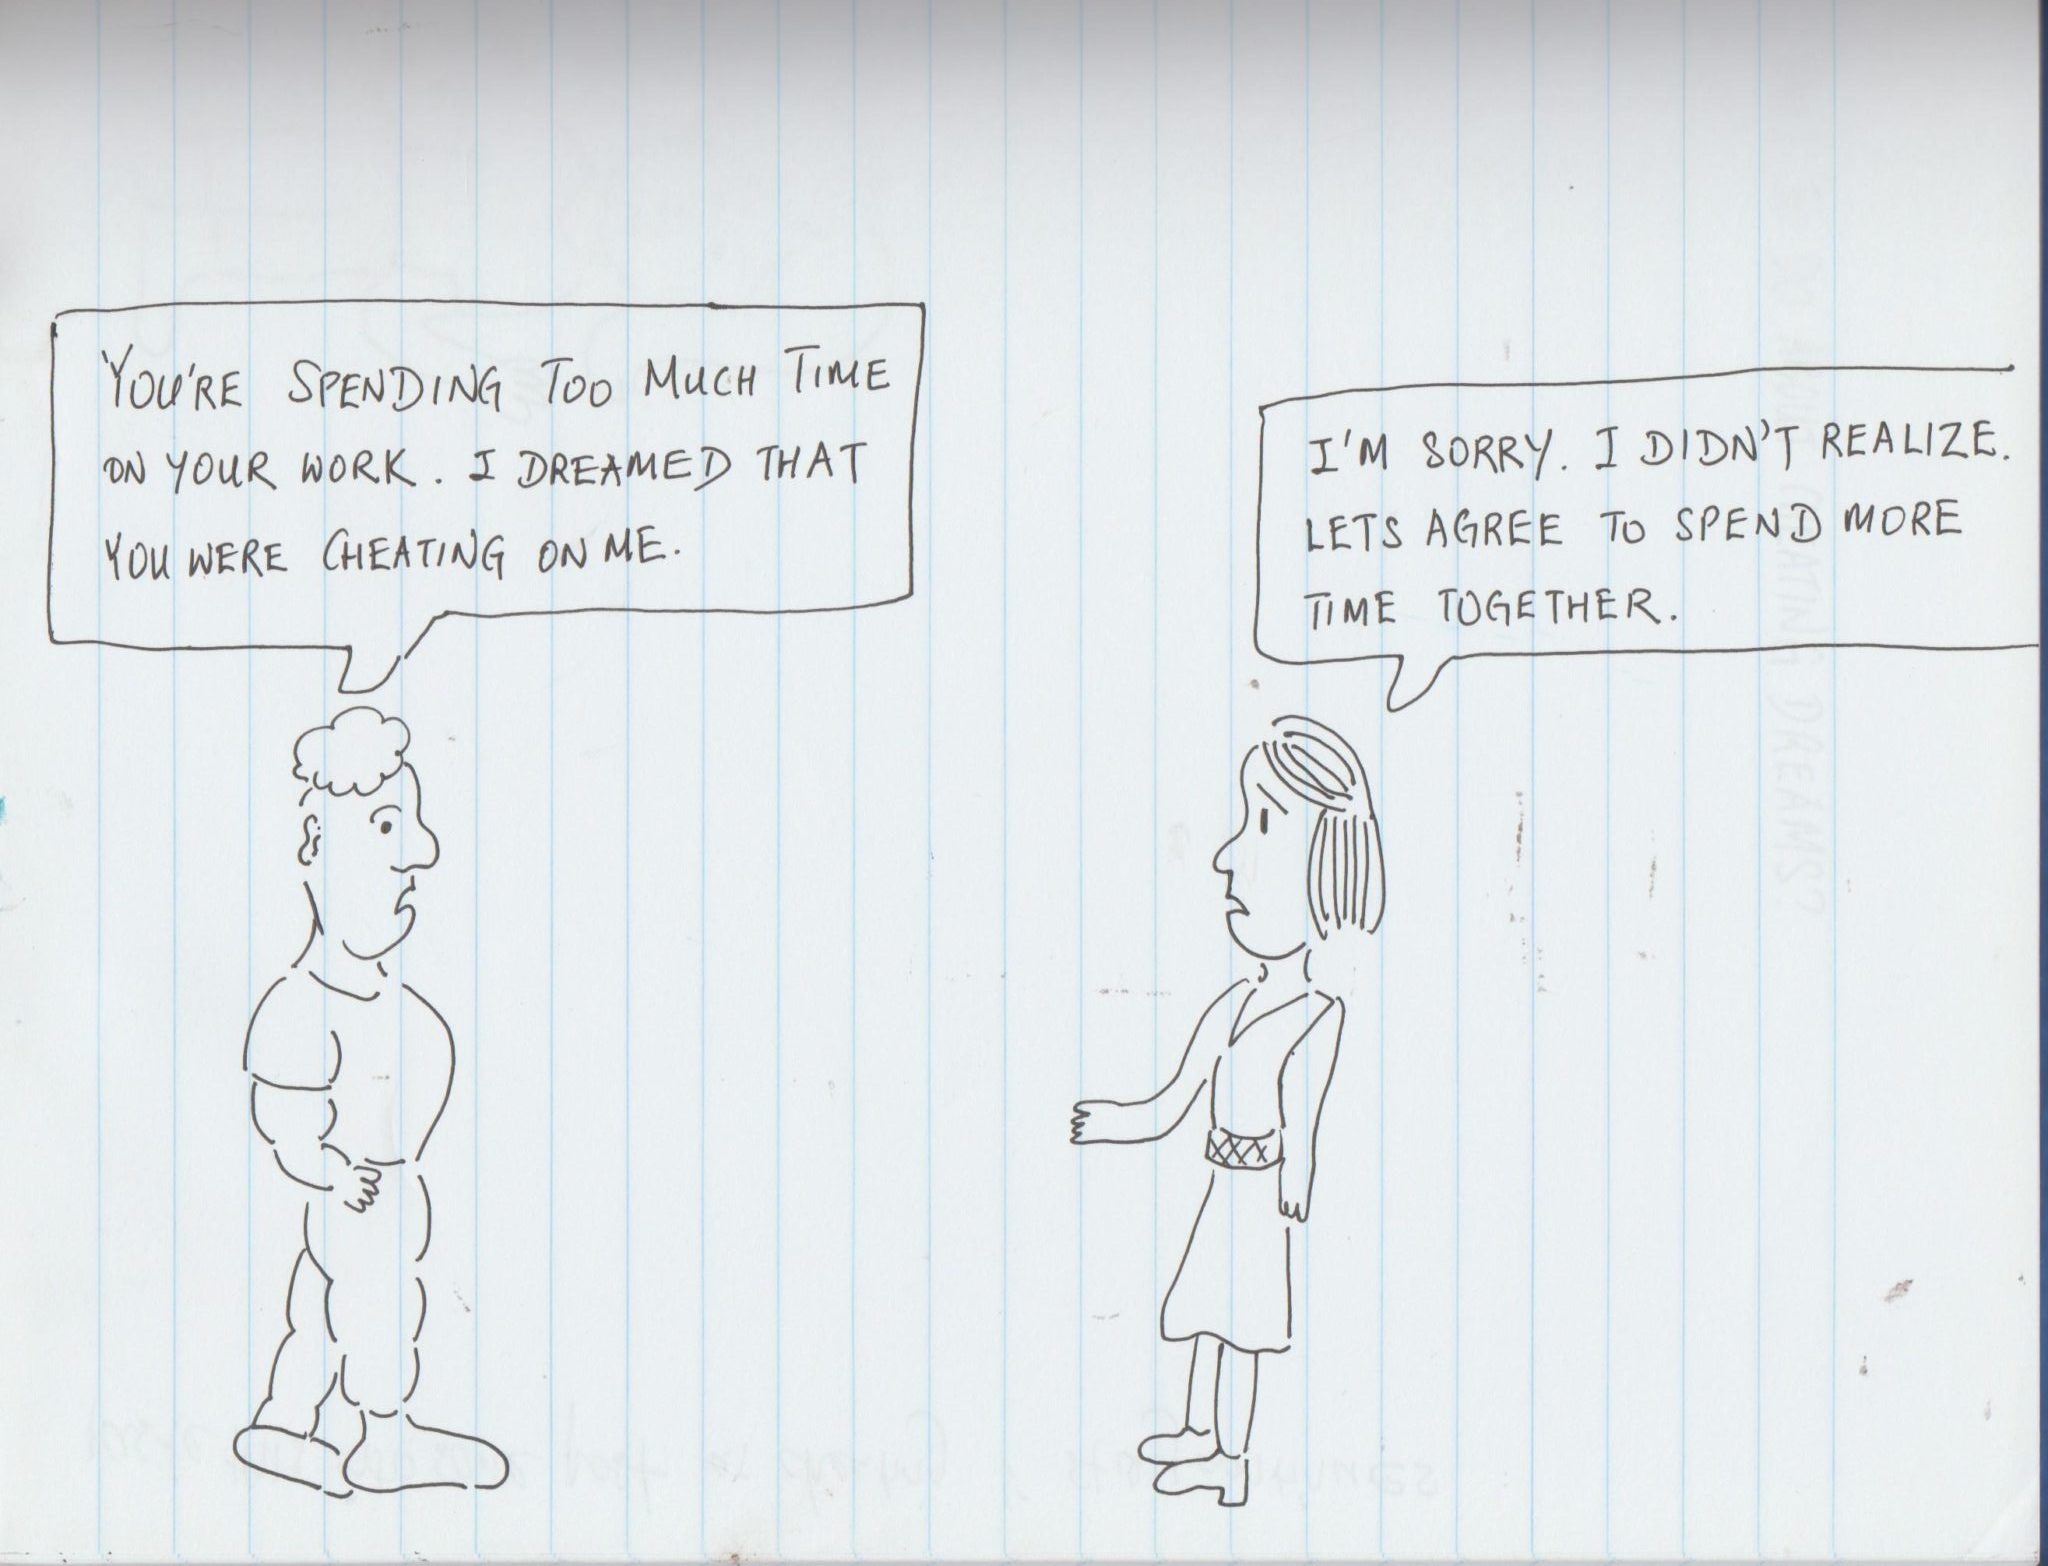 YOU'RE SPENDING TOO MUCH TIME
ON YOUR WORK. I DREAMED THAT
YOU WERE CHEATING ON ME.
I'M SORRY. I DIDN'T REALIZE.
LETS AGREE TO SPEND MORE
TIME TOGETHER.